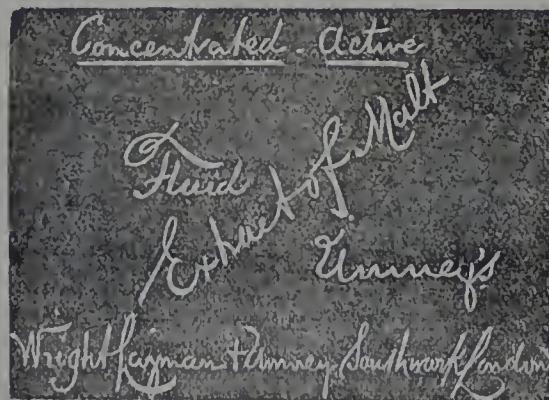 Concentrated - Active
Fluid
Extract of Malt
Umney's
Wright Layman + Umney, Southwark London